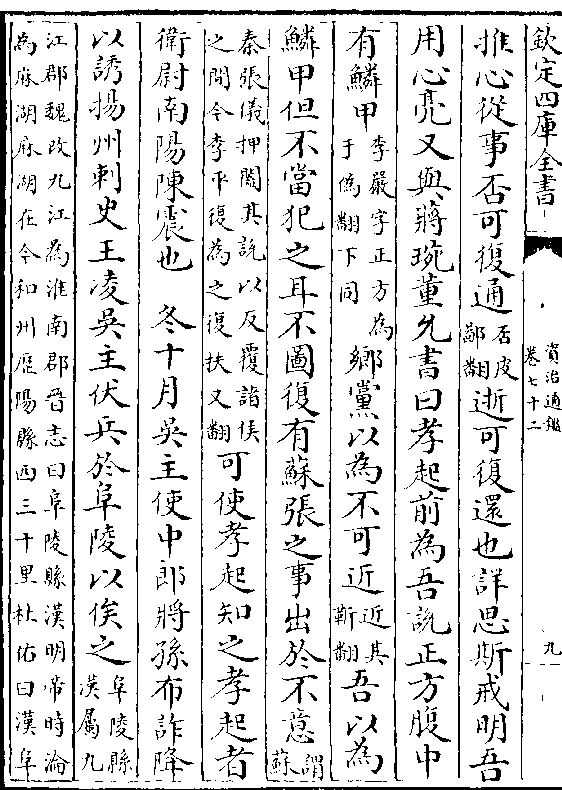 欽定四庫全書
資治通鑑
卷七十二
九
推心從事否可復通否皮鄙翻逝可復還也詳思斯戒明吾
用心亮又與蔣琬董允書曰孝起前為吾説正方腹中
有鱗甲李嚴字正方為于偽翻下同鄉黨以為不可近近其靳翻吾以為
鱗甲但不當犯之耳不圖復有蘇張之事出於不意謂蘇
秦張儀押闔其說以反覆諸侯之間今李平復為之復扶又翻可使孝起知之孝起者
衛尉南陽陳震也　冬十月吳主使中郎將孫布詐降
以誘揚州刺史王凌吳主伏兵於阜陵以俟之阜陵縣漢屬九
江郡魏改九江為淮南郡晉志曰阜陵縣漢明帝時淪為麻湖麻湖在今和州歷陽縣西三十里杜佑曰漢阜